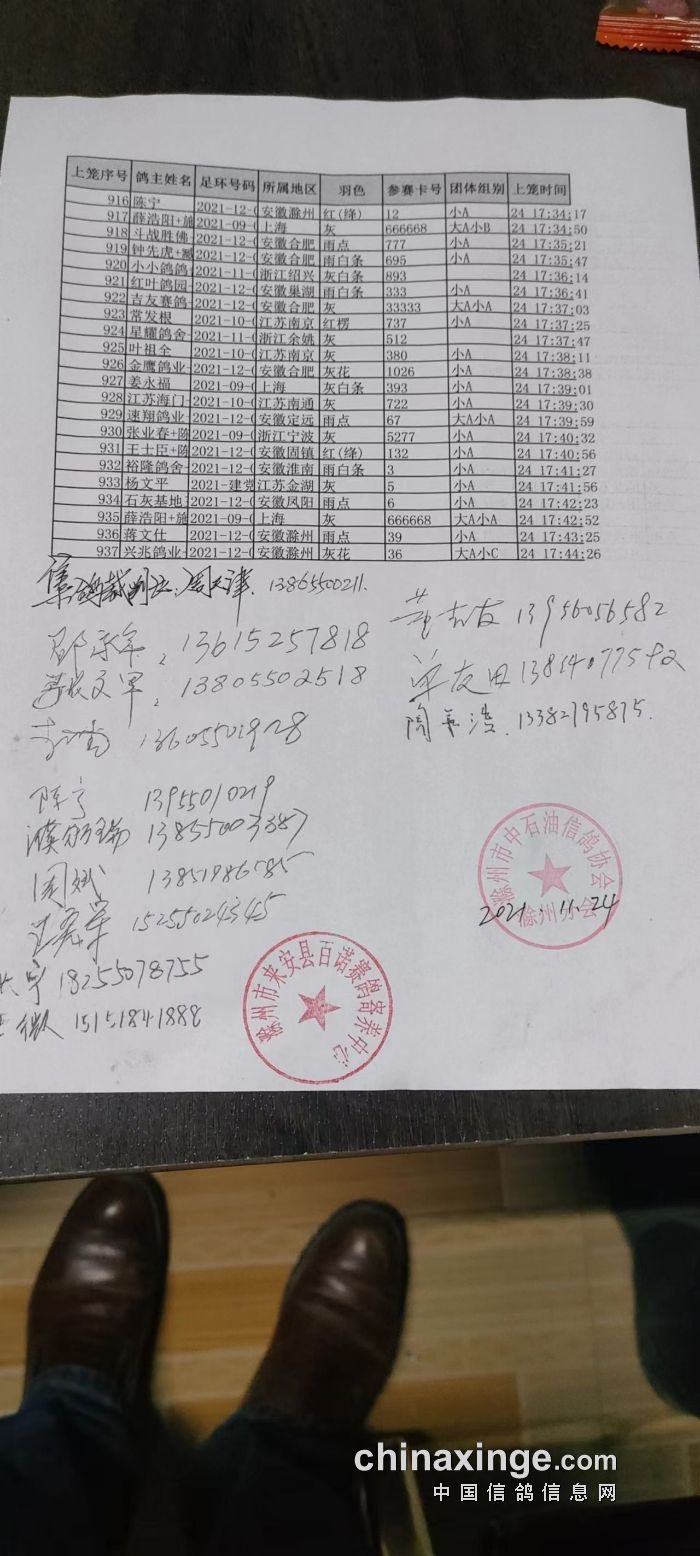 上笼序号 鸽主姓名 足环号码 所属地区 羽色 参赛卡号 团体组别 上笼时间
916 陈宁 2021-12-0 安徽滁州 红(绛) 12 小A 24 17:34:17
917 薛浩阳+施 2021-09-0 上海 灰 666668 大A小B 24 17:34:50
918 斗战胜佛- 2021-12-0 安徽合肥 雨点 777 小A 24 17:35:21
919 钟先虎+ 2021-12-0 安徽合肥 雨白条 695 小A 24 17:35:47
920 小小鸽鸽 2021-11-0 浙江绍兴 灰白条 893 24 17:36:14
921 红叶鸽园- 2021-12-0 安徽巢湖 雨白条 333 小A 24 17:36:41
922 吉友赛鸽- 2021-12-0 安徽合肥 灰 33333 大A小A 24 17:37:03
923 常发根 2021-10-0 江苏南京 红楞 737 小A 24 17:37:25
924 星耀鸽舍- 2021-11-0 浙江余姚 灰 512 24 17:37:47
925 叶祖全 2021-10-0 江苏南京 灰 380 小A 24 17:38:11
926 金鹰鸽业- 2021-12-0 安徽合肥 灰花 1026 小A 24 17:38:38
927 姜永福 2021-09-0 上海 灰白条 393 小A 24 17:39:01
928 江苏海门- 2021-10-0 江苏南通 灰 722 小A 24 17:39:30
929 速翔鸽业- 2021-12-0 安徽定远 雨点 67 大A小A 24 17:39:59
930 张业春+陈 2021-09-0 浙江宁波 灰 5277 小A 24 17:40:32
931 王士臣+陈 2021-12-0 安徽固镇 红(绛) 132 小A 24 17:40:56
932 裕隆鸽舍- 2021-12-0 安徽淮南 雨白条 3 小A 24 17:41:27
933 杨文平 2021-建党 江苏金湖 灰 5 小A 24 17:41:56
934 石灰基地 2021-12-0 安徽凤阳 雨点 6 小A 24 17:42:23
935 薛浩阳+施 2021-09-0 上海 灰 666668 大A小A 24 17:42:52
936 蒋文仕 2021-12-0 安徽滁州 雨点 39 小A 24 17:43:25
937 兴兆鸽业- 2021-12-0 安徽滁州 灰花 36 大A小C 24 17:44:26
集鸽裁判长:周天津. 13865500211.
13956056582
13615257818
13805502518
陶 浩. 13382795875.
陈宁 13955010219
周斌
15255024345
宇 18255078755
15151841888
滁州市中石油信鸽协会
滁州分会
2021.11.24
滁州市来安县百诺赛鸽寄养中心
chinaxinge.com
中国信鸽信息网